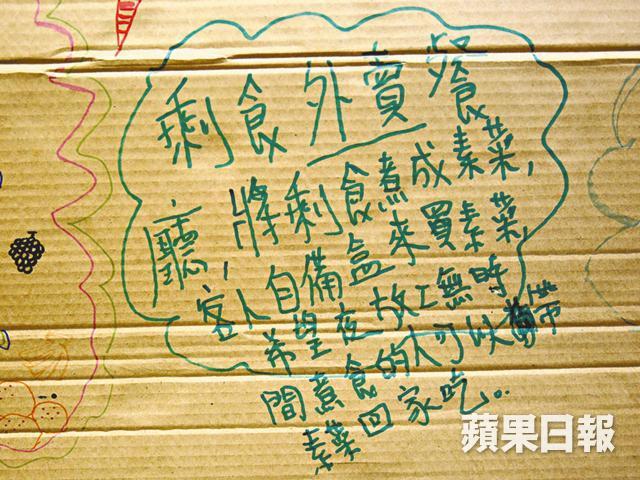 剩食外賣餐
廳,將剩食煮成素菜,
客人自備盒來買素菜,
希望夜放工無時
間煮食的人可以帶
素菜回家吃..
蘋果日報